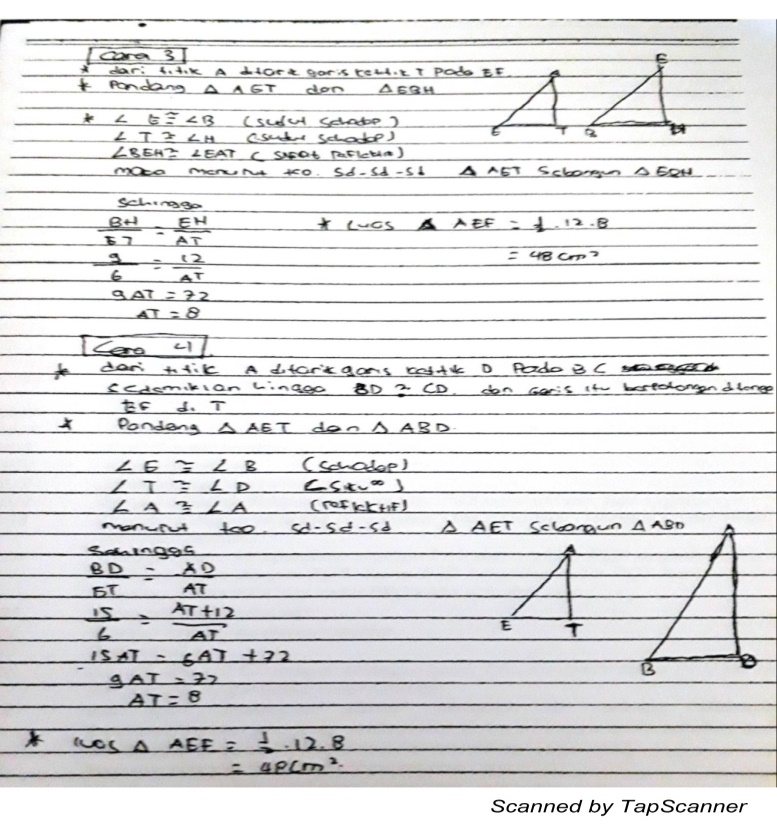 Cara 3
* dari titik A ditarik garis ke titik T pada EF
* Pandang Δ AET dan Δ EBH
* ∠ E ≅ ∠B (sudut sehadap)
∠ T ≅ ∠H (sudut sehadap)
∠BEH ≅ ∠EAT (
maka menurut teo. Sd-Sd-Sd Δ AET Sebangun Δ EBH
Sehingga
BH/ET = EH/AT
* Luas Δ AEF = 1/2 . 12 . 8
9/6 = 12/AT
= 48 cm²
9AT = 72
AT = 8
E A T
B E H
Cara 4
* dari titik A ditarik garis ke titik D Pada BC
sedemikian hingga BD ≅ CD. dan garis itu berpotongan dengan
EF di T
* Pandang Δ AET dan Δ ABD.
∠ E ≅ ∠ B (sehadap)
∠ T ≅ ∠ D (Siku²)
∠ A ≅ ∠ A (reflektif)
menurut teo. Sd-Sd-Sd Δ AET Sebangun Δ ABD
Sehingga
BD/ET = AD/AT
15/6 = AT+12/AT
15AT = 6AT + 72
9AT = 72
AT = 8
E A T
B A D
* Luas Δ AEF = 1/2 . 12 . 8
= 48 cm²
Scanned by TapScanner